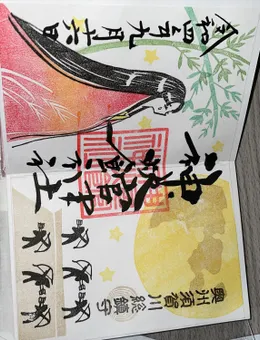 奥州須賀川
総鎮守
神炊館神社
令和四年九月十六日